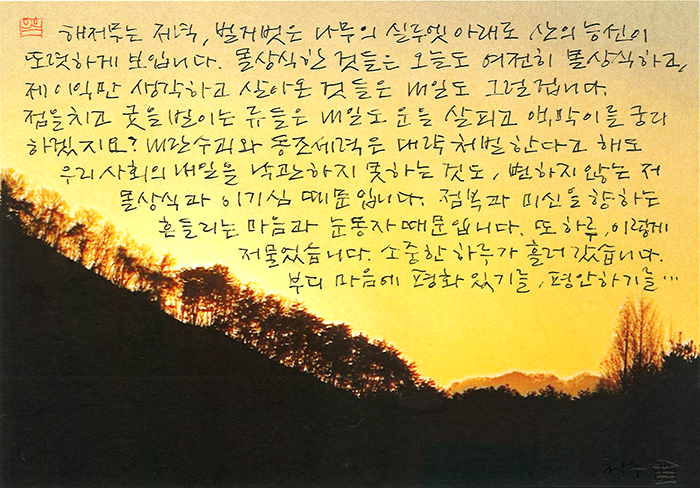 해저무는 저녁, 벌거벗은 나무의 실루엣 아래로 산의 능선이
또렷하게 보입니다. 몰상식한 것들은 오늘도 여전히 몰상식하고,
제 이익만 생각하고 살아온 것들은 내일도 그럴겁니다.
점을치고 굿을 벌이는 류들은 내일도 운을 살피고 액막이를 궁리
하겠지요? 내란수괴와 동조세력은 대략 처벌한다고 해도
우리 사회의 내일을 낙관하지 못하는 것도, 변하지 않는 저
몰상식과 이기심 때문입니다. 점복과 미신을 향하는
흔들리는 마음과 눈동자 때문입니다. 또 하루, 이렇게
저물었습니다. 소중한 하루가 흘러 갔습니다.
부디 마음에 평화 있기를, 평안하기를…